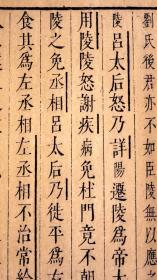 劉氏後君亦不如臣陵無以應
陵呂太后怒乃詳陽遷陵爲帝太
用陵陵怒謝疾病免杜門竟不朝
陵之免丞相呂太后乃徙平爲右
食其爲左丞相左丞相不治常給